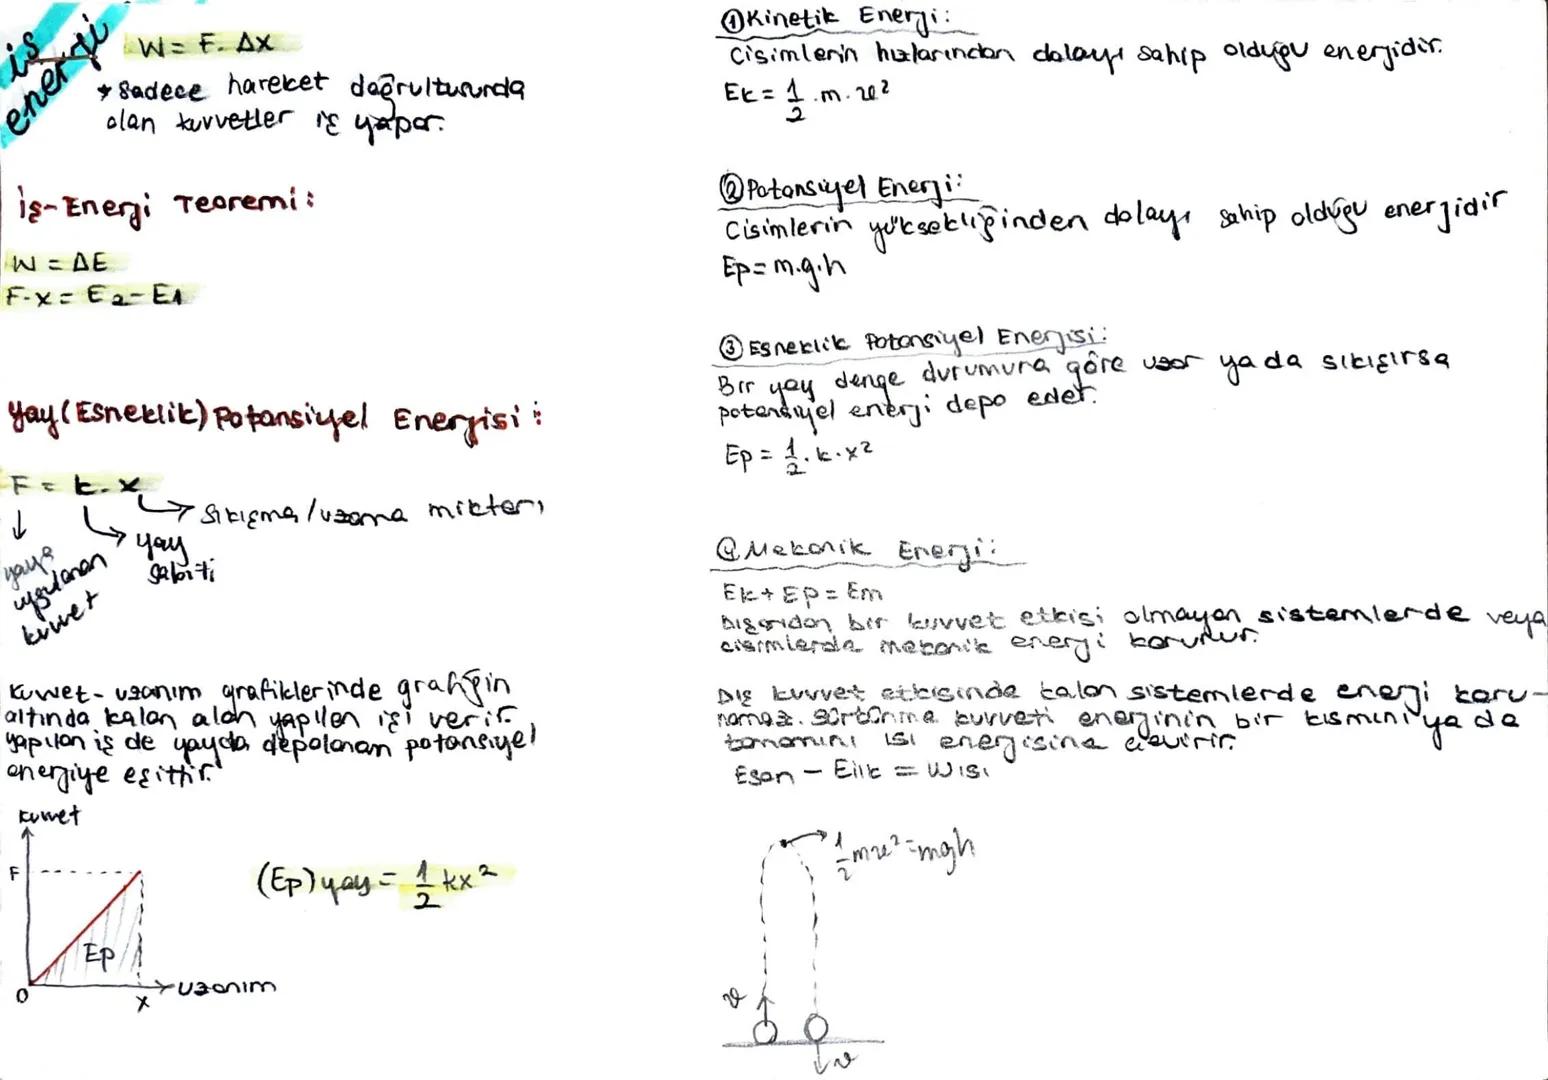 iş
enerji
W = F. Δx
* Sadece hareket doğrultusunda
olan kuvvetler iş yapar.
İş-Enerji Teoremi:
W = ΔE
F.x = E2 - E1
Yay (Esneklik) Potansiyel Enerjisi:
F = k. x
sıkışma/uzama miktarı
yay
sabiti
yaya
uygulanan
kuvvet
Kuvvet-uzanım grafiklerinde grafiğin
altında kalan alan yapılan işi verir.
Yapılan iş de yayda depolanan potansiyel
enerjiye eşittir.
kuvvet
F
Ep
O
x
uzanım
(Ep)yay = 1/2 kx²
① Kinetik Enerji:
Cisimlerin hızlarından dolayı sahip olduğu enerjidir.
Ek = 1/2 .m.v²
② Potansiyel Enerji:
Cisimlerin yüksekliğinden dolayı sahip olduğu enerjidir
Ep = m.g.h
③ Esneklik Potansiyel Enerjisi:
Bir yay denge durumuna göre uzar ya da sıkışırsa
potansiyel enerji depo eder.
Ep = 1/2 . k.x²
④ Mekanik Enerji:
Ek + Ep = Em
Dışarıdan bir kuvvet etkisi olmayan sistemlerde veya
cisimlerde mekanik enerji korunur.
Dış kuvvet etkisinde kalan sistemlerde enerji koru-
namaz. Sürtünme kuvveti enerjinin bir kısmını ya da
tamamını ısı enerjisine çevirir.
Eson - Eilk = Wısı
1/2 mv² = mgh
v
v